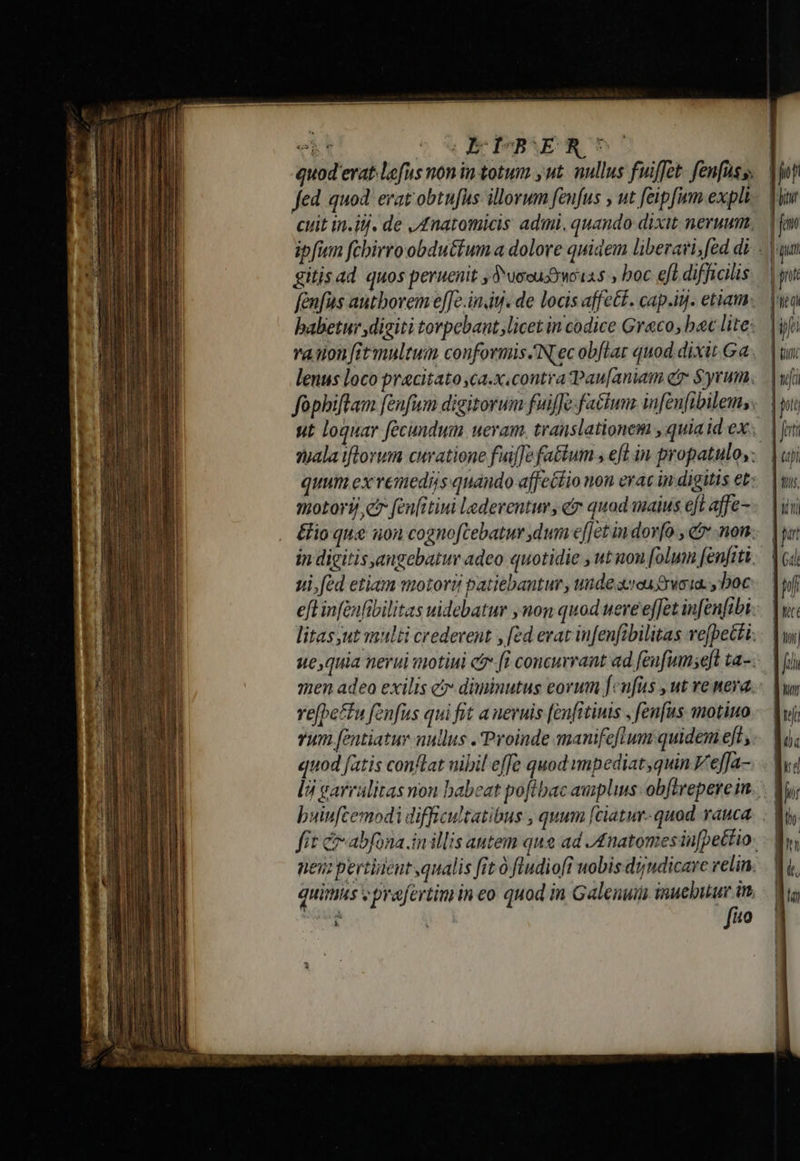 LIBER
quod erat læsus non in totum, ut nullus fuisset sensus,
sed quod erat obtusus illorum sensus, ut seipsum expli-
cuit in.iij. de Anatomicis admi. quando dixit neruum,
ipsum schirro obductum a dolore quidem liberari, sed di-
gitis ad quos peruenit, δυσαισθησίας, hoc est difficilis
sensus authorem esse.in.iij. de locis affect. cap.iij. etiam
habetur, digiti torpebant, licet in codice Græco, hæc lite-
ra non sit multum conformis. Nec obstat quod dixit Ga-
lenus loco præcitato, ca.x. contra Pausaniam & Syrum,
sophistam sensum digitorum fuisse factum insensibilem,
ut loquar secundum ueram translationem, quia id ex
mala istorum curatione fuisse factum, est in propatulo,
quum ex remedijs quando affectio non erat in digitis et
motorij, & sensitiui læderentur, & quod maius est affe-
ctio quæ non cognoscebatur, dum esset in dorso, & non
in digitis, angebatur adeo quotidie, ut non solum sensiti
ui, sed etiam motorij patiebantur, unde ἀναισθησία, hoc
est insensibilitas uidebatur, non quod uere esset insensibi-
litas, ut multi crederent, sed erat insensibilitas respecti-
ue, quia nerui motiui & si concurrant ad sensum, est ta-
men adeo exilis & diminutus eorum sensus, ut re uera
respectu sensus qui fit a neruis sensitiuis, sensus motiuo
rum sentiatur nullus. Proinde manifestum quidem est,
quod satis constat nihil esse quod impediat, quin Vessa-
lij garrulitas non habeat posthac amplius obstrepere in
huiuscemodi difficultatibus, quum sciatur quod rauca
fit & absona. in illis autem quæ ad Anatomes inspectio
nem pertinent, qualis sit ò studiosi uobis dijudicare relin
quimus, præsertim in eo quod in Galenum inuehitur in
suo